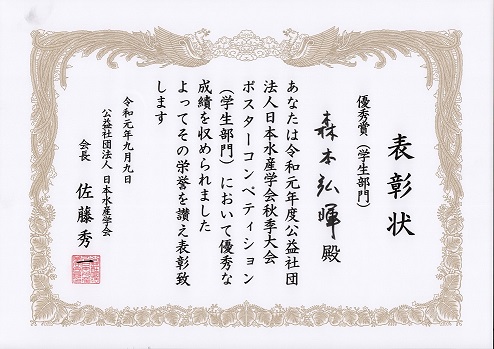 表彰状
優秀賞（学生部門）
森本弘暉 殿
あなたは令和元年度公益社団
法人日本水産学会秋季大会
ポスターコンペティション
（学生部門）において優秀な
成績を収められました
よってその栄誉を讃え表彰致
します
令和元年九月九日
公益社団法人 日本水産学会
会長 佐藤秀一